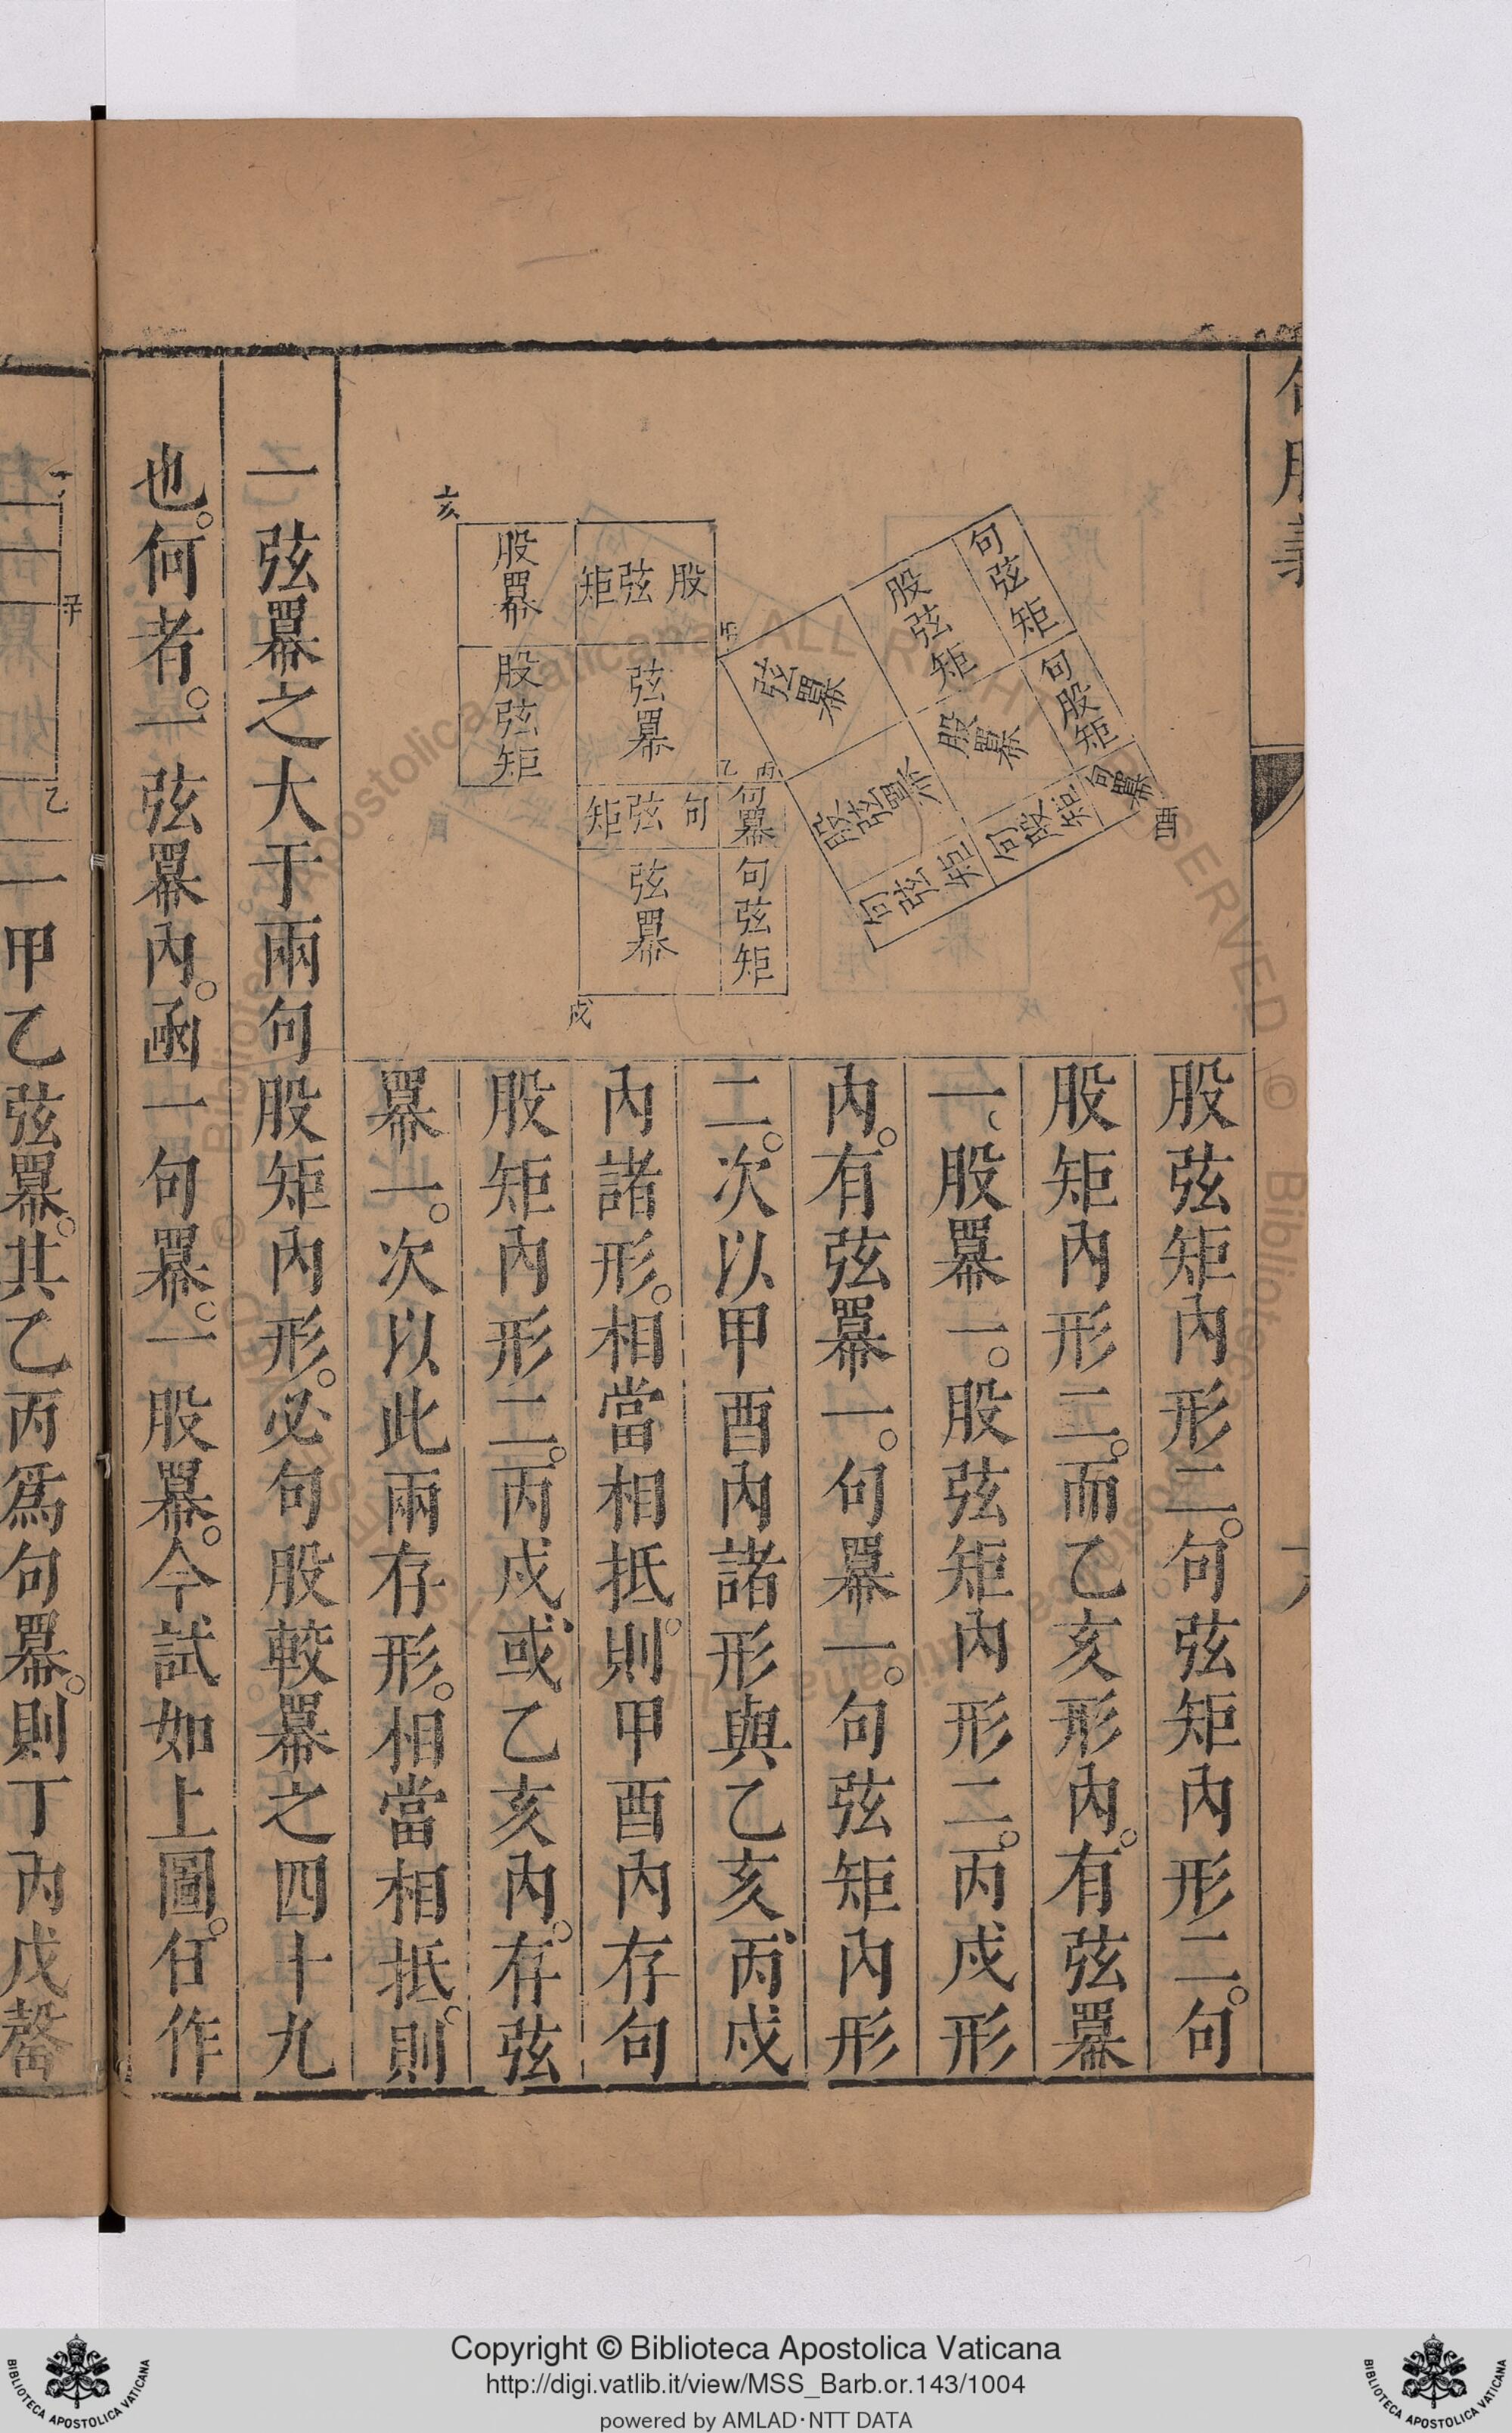 句股義
股弦矩內形二。句弦矩內形二。句
股矩內形二。而乙亥形內。有弦冪
一、股冪一。股弦矩內形二。丙戌形
內。有弦冪一。句冪一。句弦矩內形
二。次以甲酉內諸形與乙亥、丙戌
內諸形。相當相抵。則甲酉內存句
股矩內形二。丙戌、或乙亥內。存弦
冪一。次以此兩存形。相當相抵。則
一弦冪之大于兩句股矩內形。必句股較冪之四十九
也。何者。一弦冪內。函一句冪。一股冪。今試如上圖。任作
句弦矩
股弦矩
句股矩
弦冪
股冪
句冪
酉
股弦冪
句股矩
句弦矩
亥
股冪
股弦矩
壬
股弦矩
弦冪
乙
丙
句弦矩
句冪
弦冪
句弦矩
戌
子
乙
一甲乙弦冪。其乙丙爲句冪。則丁丙戊罄
Copyright © Biblioteca Apostolica Vaticana
http://digi.vatlib.it/view/MSS_Barb.or.143/1004
powered by AMLAD·NTT DATA
BIBLIOTECA APOSTOLICA VATICANA
BIBLIOTECA APOSTOLICA VATICANA